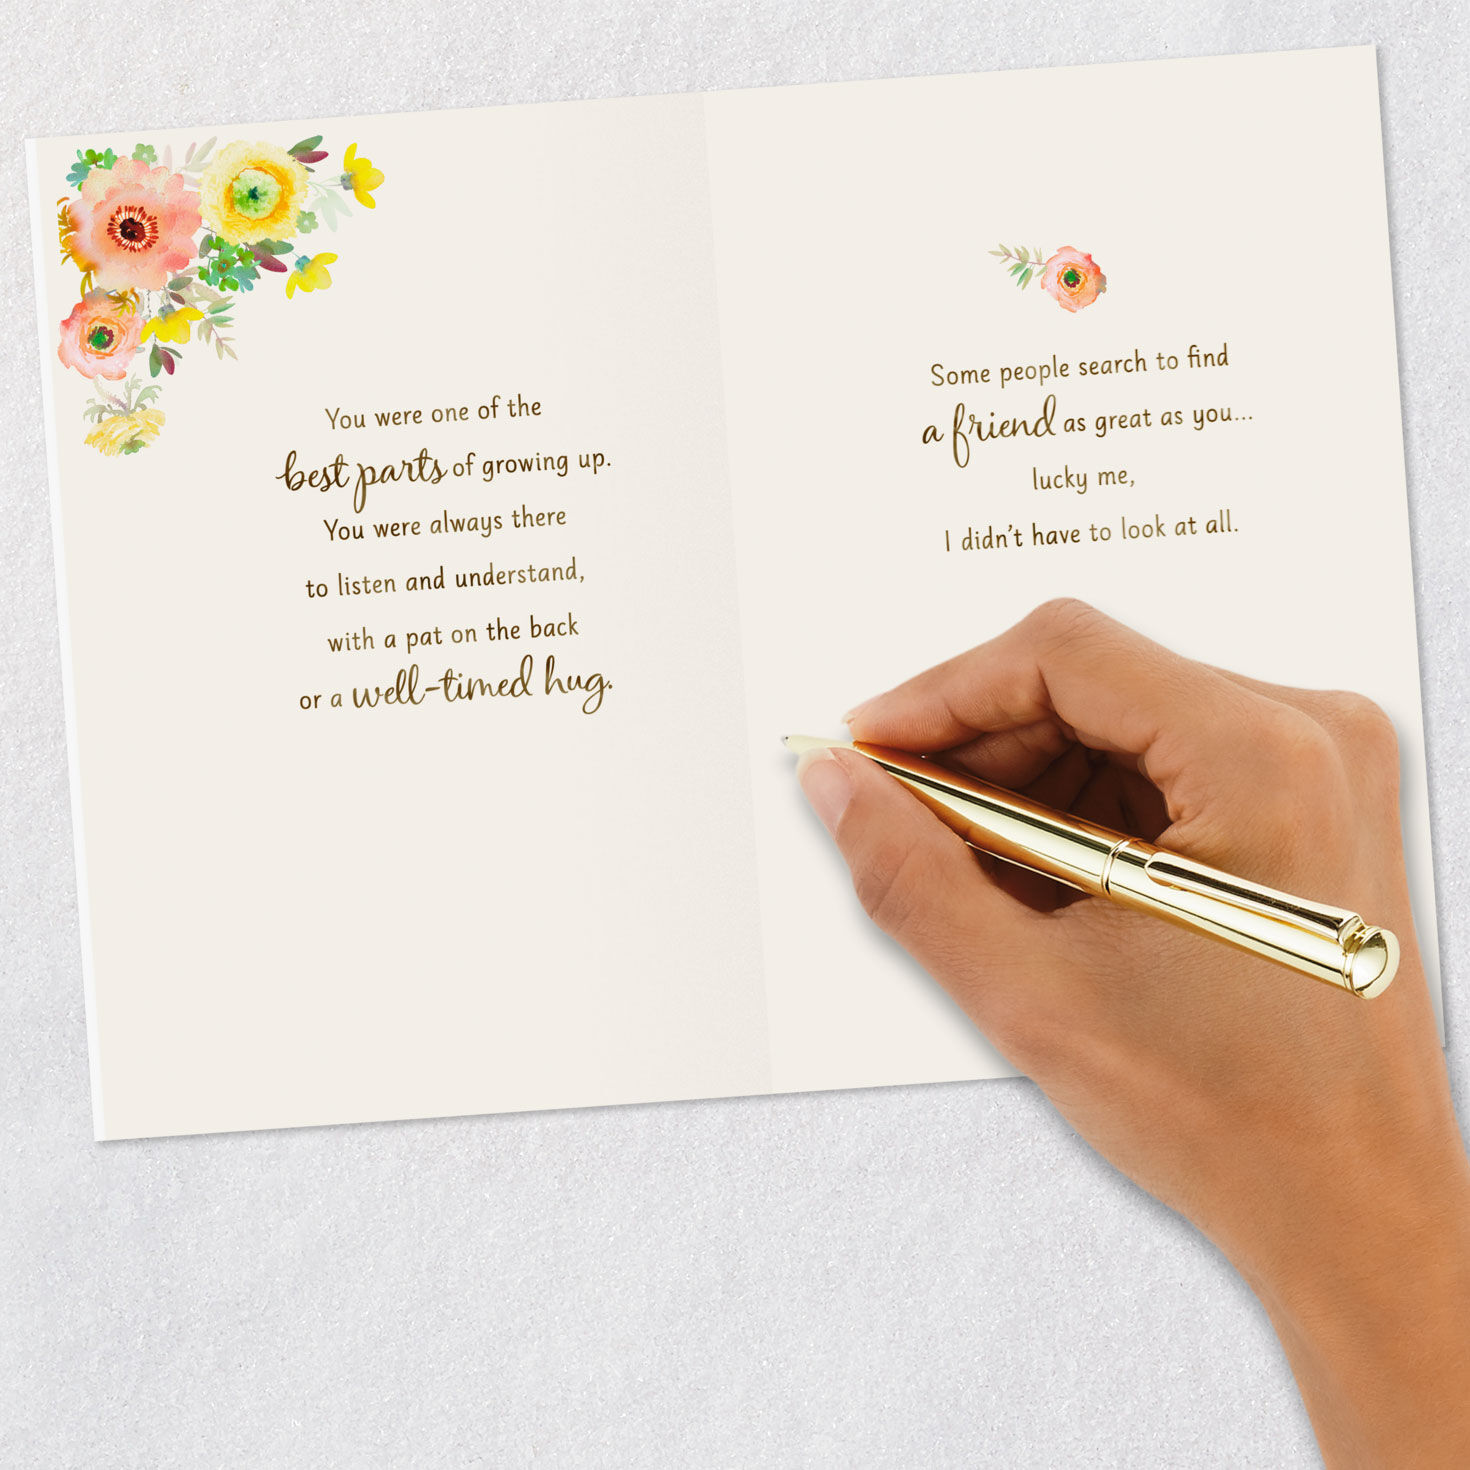 You were one of the
best parts of growing up.
You were always there
to listen and understand,
with a pat on the back
or a well-timed hug.
Some people search to find
a friend as great as you...
lucky me,
I didn't have to look at all.